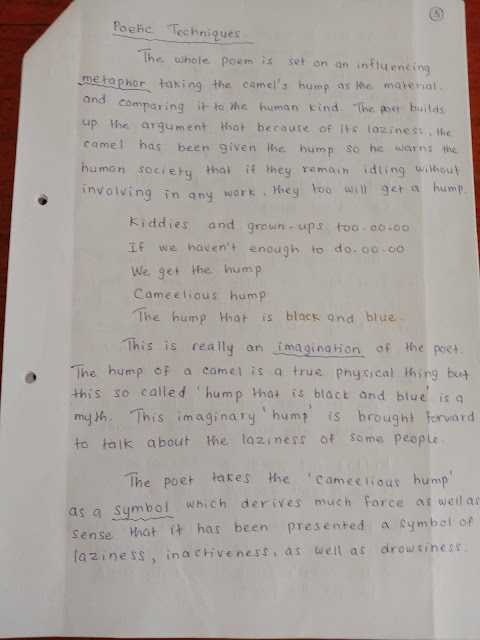 5
Poetic Techniques.
The whole poem is set on an influencing
metaphor taking the camel's hump as the material
and comparing it to the human kind. The poet builds
up the argument that because of its laziness, the
camel has been given the hump so he warns the
human society that if they remain idling without
involving in any work, they too will get a hump.
Kiddies and grown-ups too-oo-oo
If we haven't enough to do-oo-oo
We get the hump
Cameelious hump
The hump that is black and blue.
This is really an imagination of the poet.
The hump of a camel is a true physical thing but
this so called 'hump that is black and blue' is a
myth. This imaginary 'hump' is brought forward
to talk about the laziness of some people.
The poet takes the 'cameelious hump'
as a symbol which derives much farce as well as
sense that it has been presented a symbol of
laziness, inactiveness, as well as drowsiness.